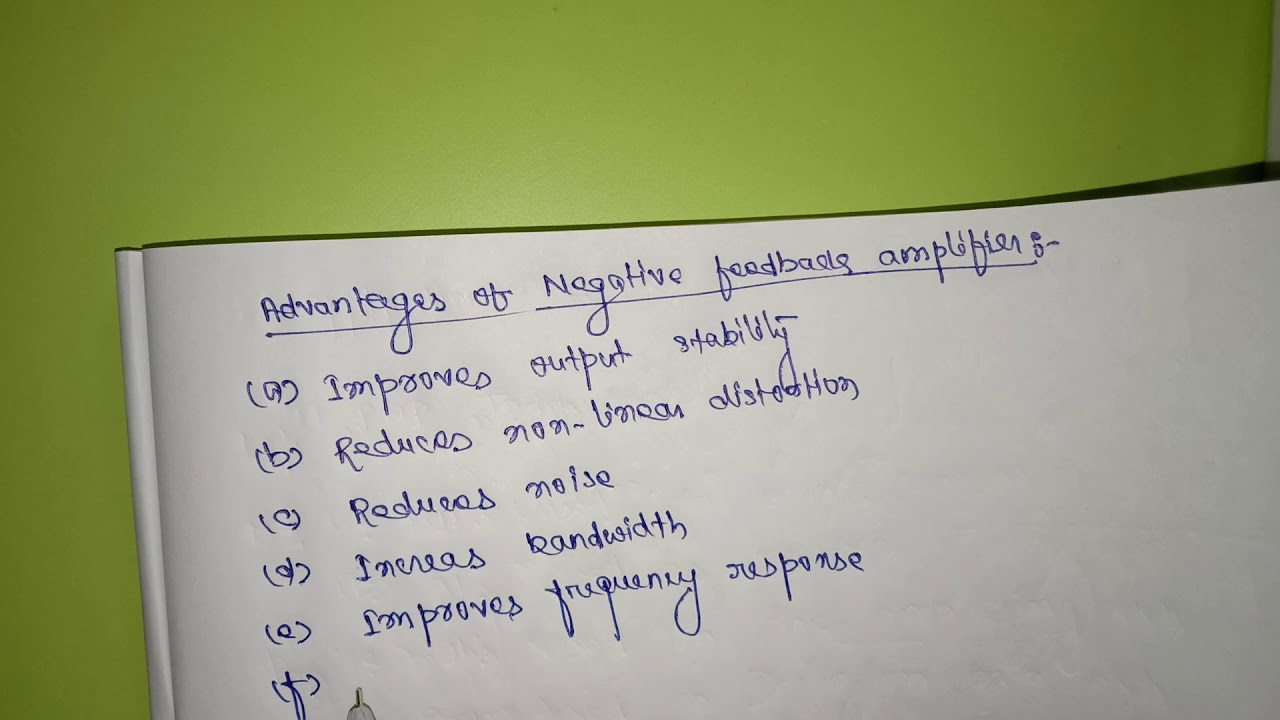 Advantages of Negative feedback amplifier :-
(a) Improves output stability
(b) Reduces non-linear distortion
(c) Reduces noise
(d) Increas bandwidth
(e) Improves frequency response
(f)